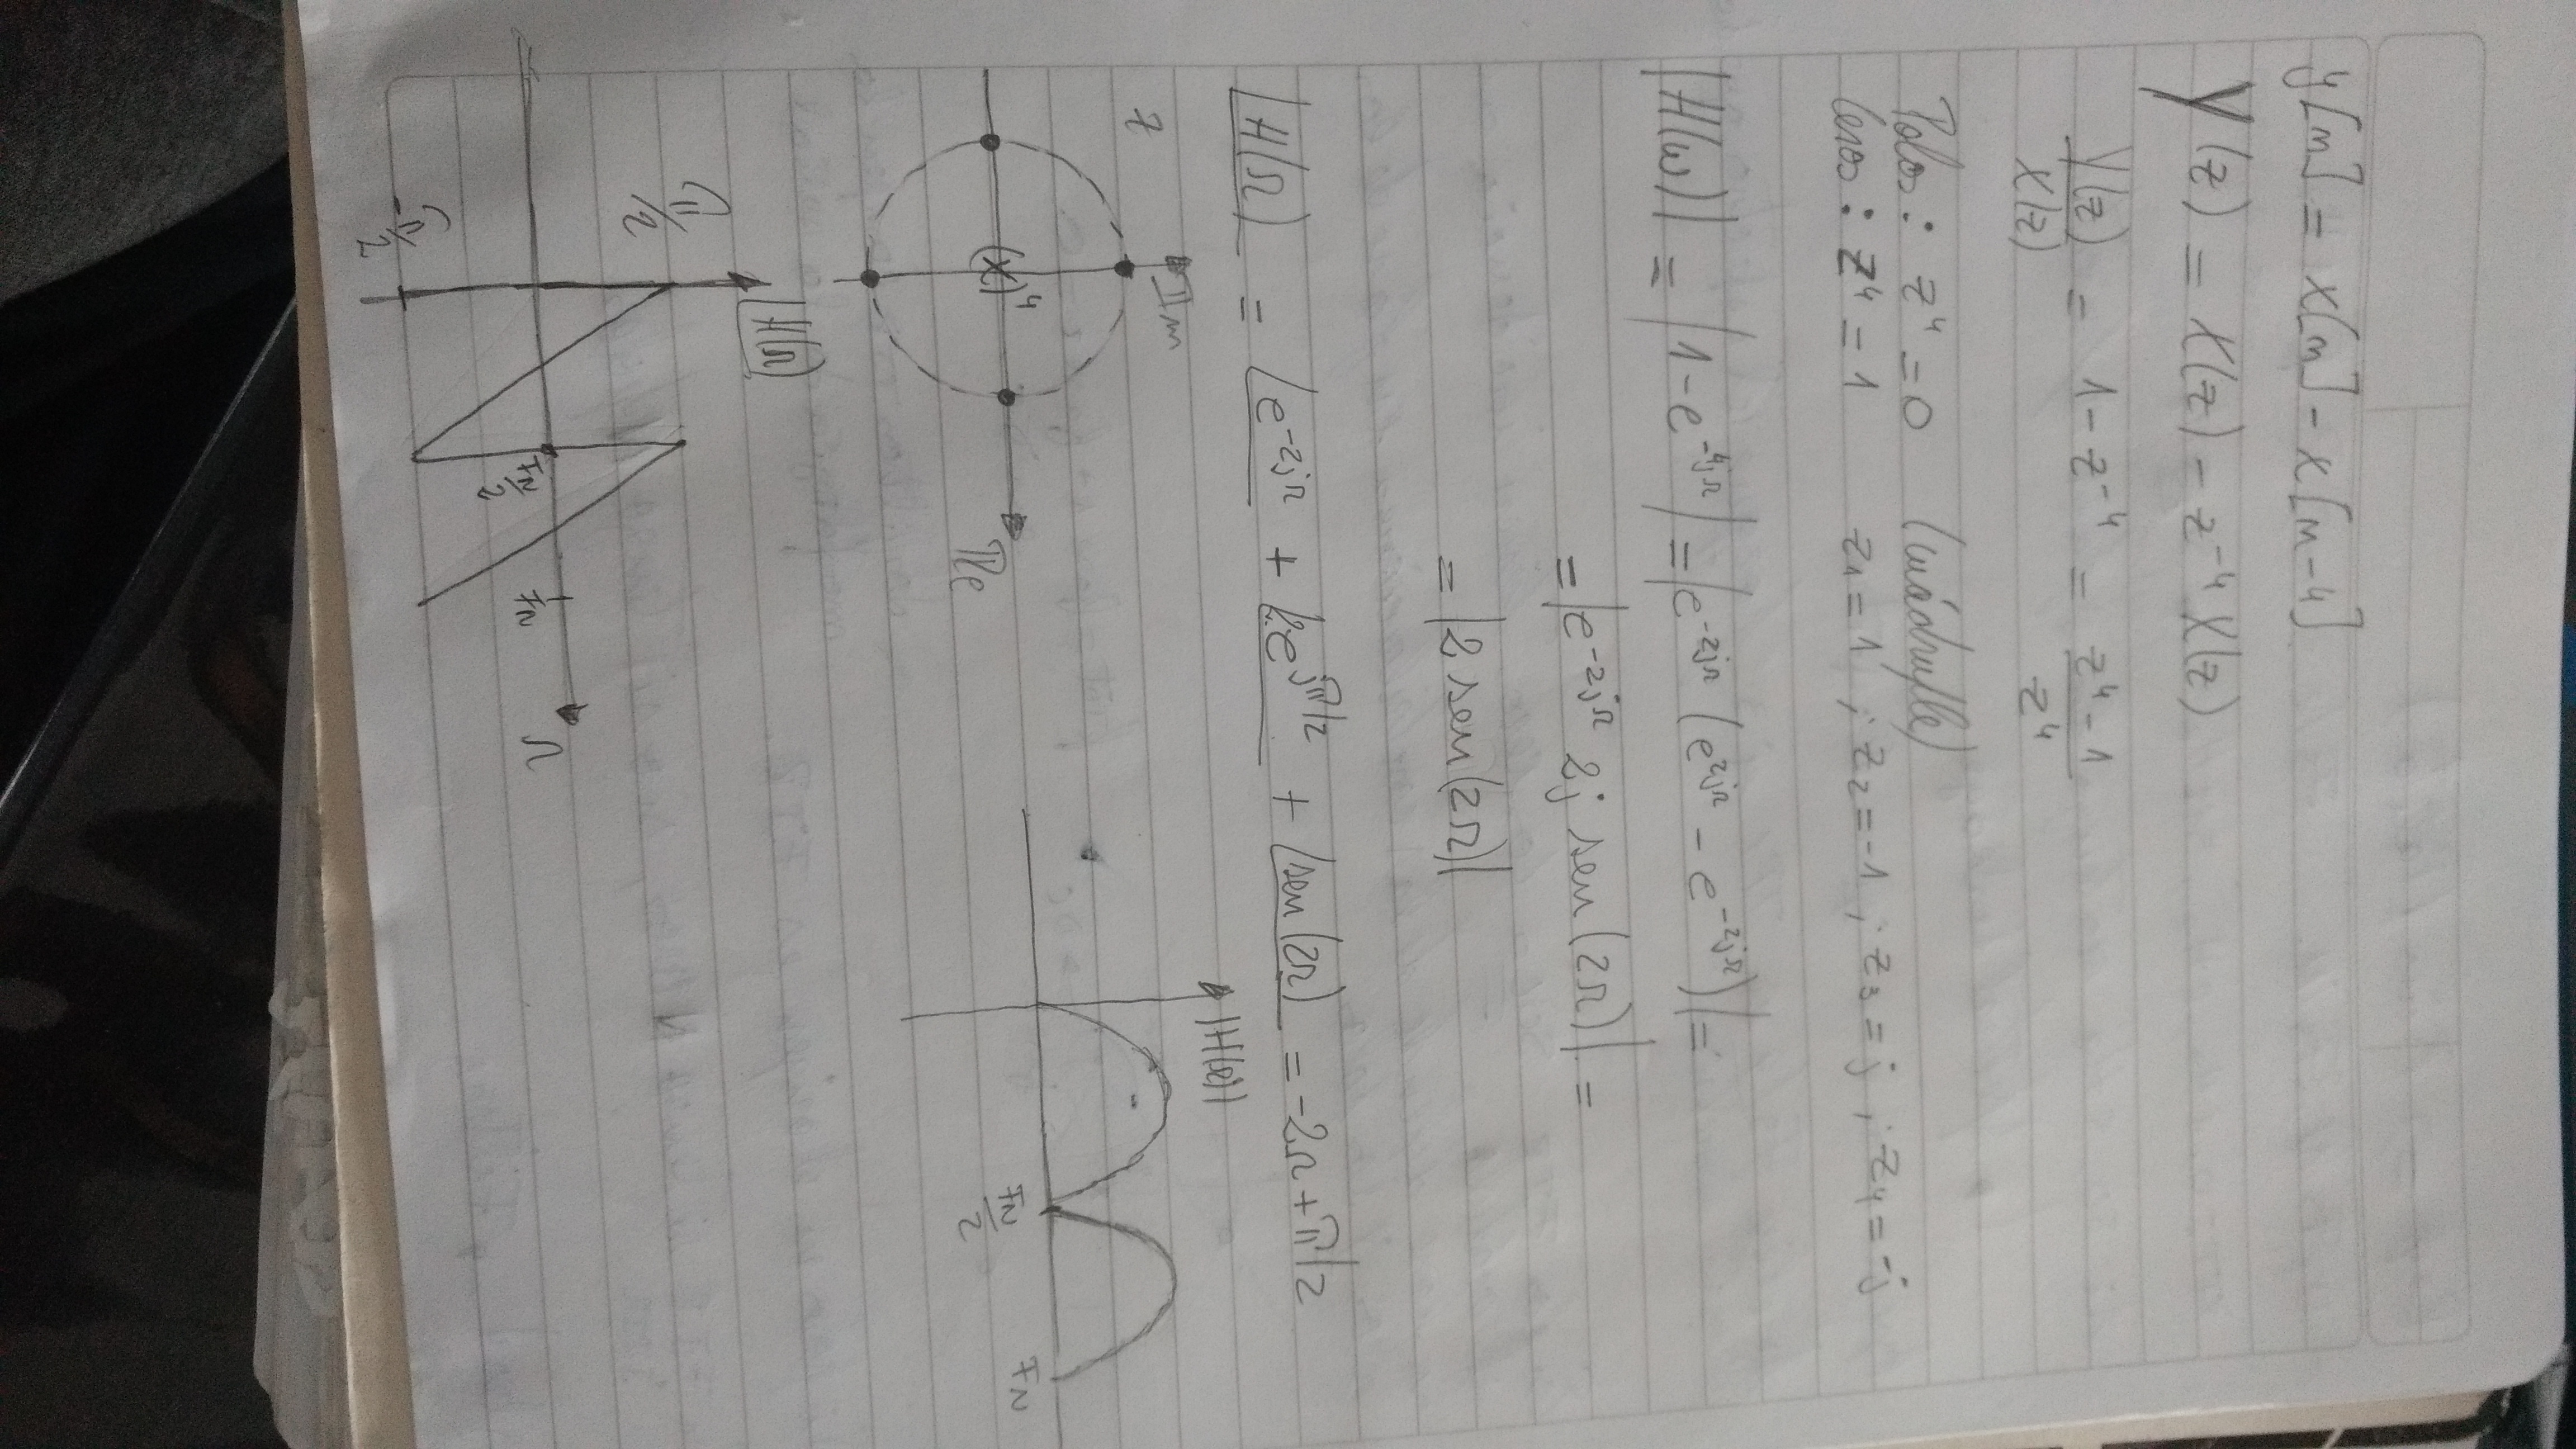 y[n] = x[n] - x[n-4]
Y(z) = X(z) - z⁻⁴ X(z)
Y(z)/X(z) = 1 - z⁻⁴ = (z⁴ - 1)/z⁴
Polos: z⁴ = 0 (cuádruple)
Ceros: z⁴ = 1 z₁ = 1 ; z₂ = -1 ; z₃ = j ; z₄ = -j
|H(ω)| = |1 - e^(-4jΩ)| = |e^(-2jΩ) (e^(2jΩ) - e^(-2jΩ))| =
= |e^(-2jΩ) 2j sen(2Ω)| =
= |2 sen(2Ω)|
∠H(Ω) = ∠e^(-2jΩ) + ∠2·e^(jπ/2) + ∠sen(2Ω) = -2Ω + π/2
z
Im
(x)⁴
Re
|H(Ω)|
fN/2
fN
∠H(Ω)
π/2
-π/2
fN/2
fN
Ω